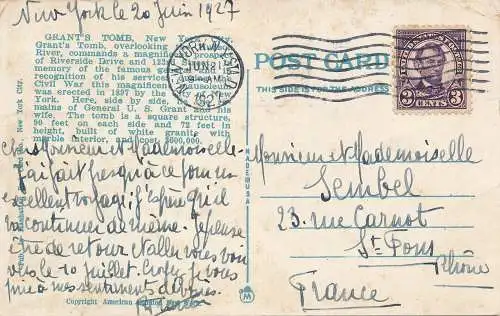 New York le 20 Juin 1927
GRANT'S TOMB, New York City.
Grant's Tomb, overlooking
River, commands a magnificent prospect
of Riverside Drive and
memory of the famous
recognition of his services
Civil War this magnificent mausoleum
was erected in 1897 by the
York. Here, side by side,
mains of General U. S. Grant and his
wife. The tomb is a square structure,
90 feet on each side and 72 feet in
height, built of white granite with
marble interior, and cost $600,000.
NEW YORK, N.Y.
JUN 21
1927
POST CARD
THIS SIDE IS FOR THE ADDRESS
UNITED STATES POSTAGE
LINCOLN
3 CENTS 3
MADE IN USA
New York City.
Monsieur et Mademoiselle
J'ai fait jusqu'à ce jour un
excellent voyage, j'espère qu'il
va continuer de même. Je pense
être de retour et aller vous voir
vers le 10 juillet. Croyez je vous
prie à mes sentiments dévoués.
Monsieur et Mademoiselle
Sembel
23 rue Carnot
St Fons
Rhône
France
Copyright American